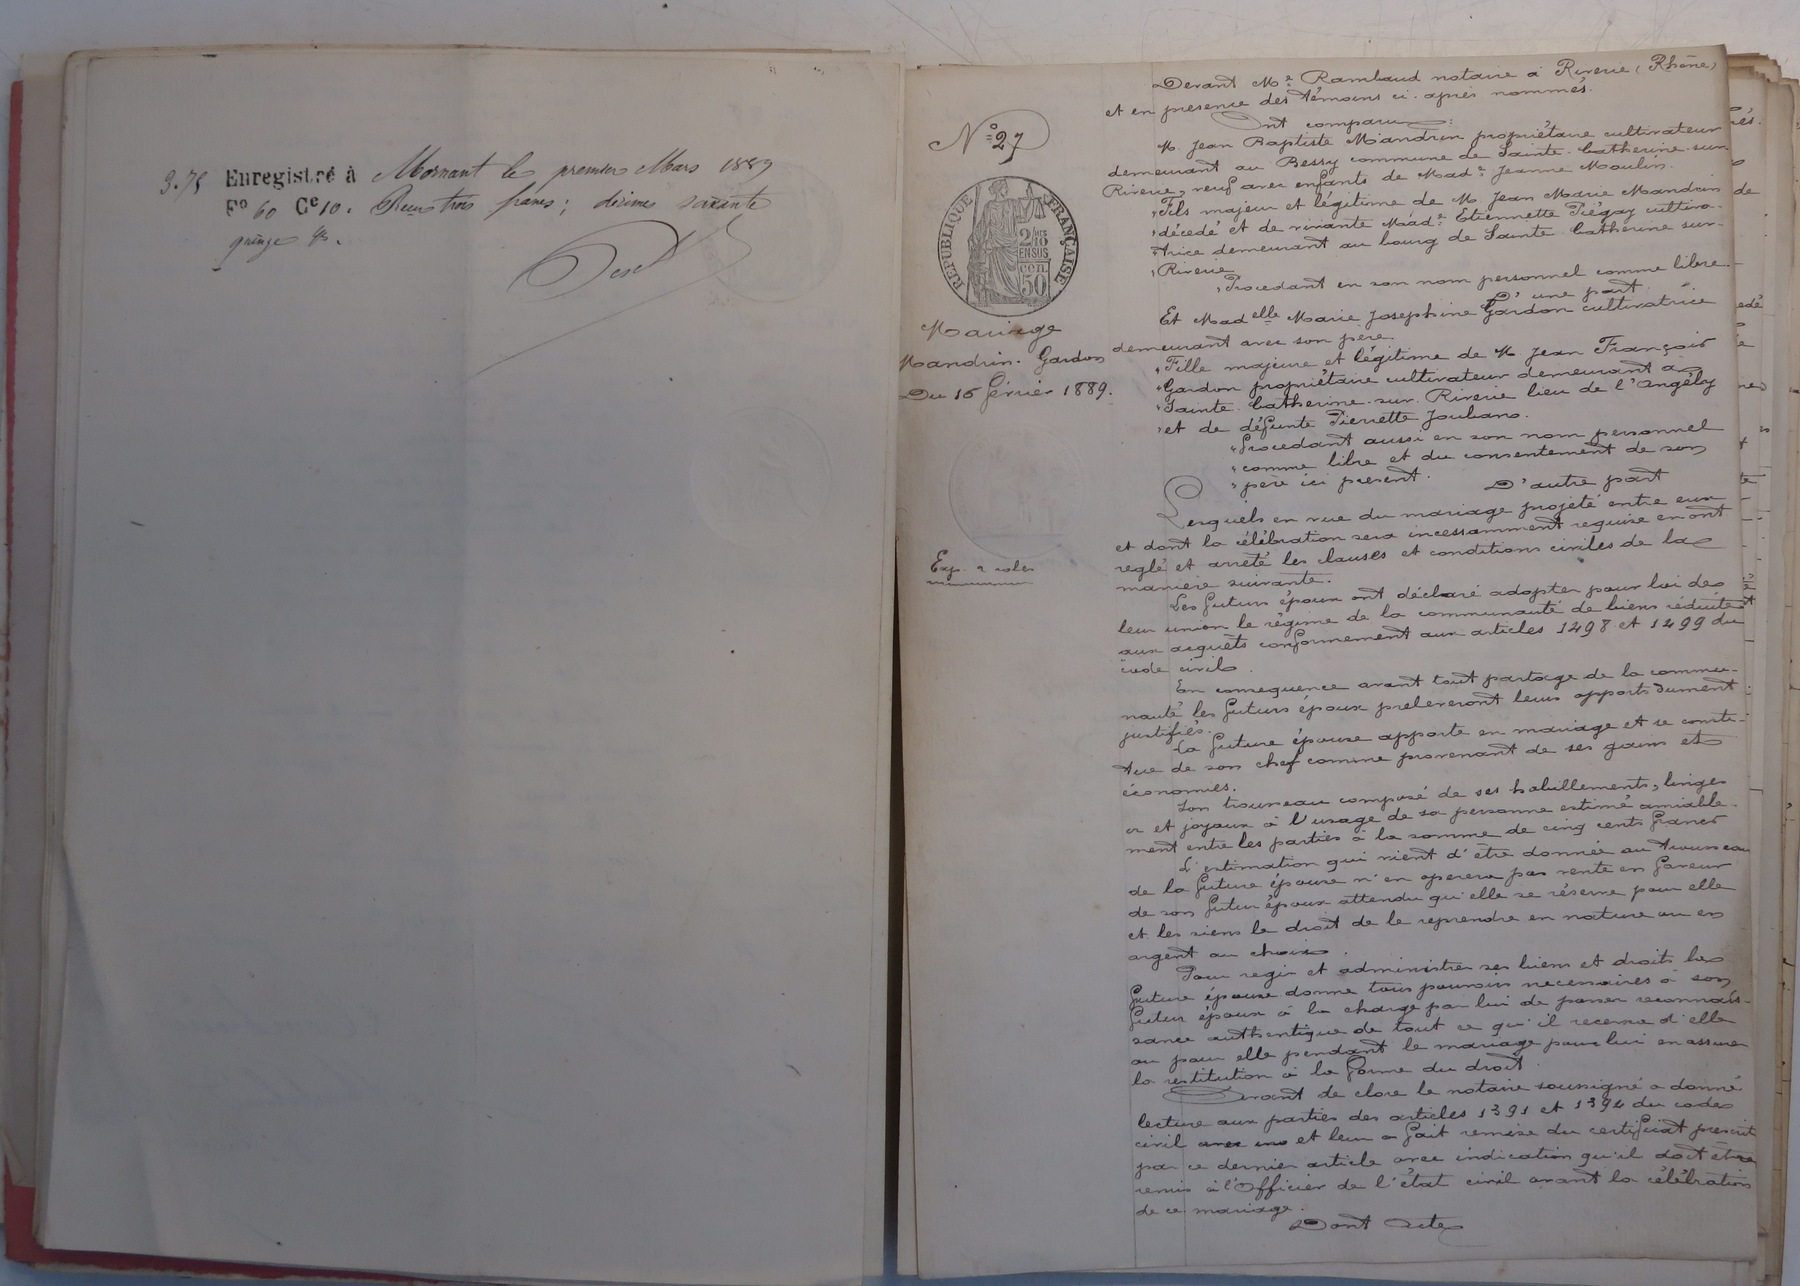 3.75 Enregistré à Mornant le premier Mars 1889
Fo 60 Ce 10. Reçu trois francs; décimes soixante
quinze
No 27
RÉPUBLIQUE FRANÇAISE
2/10 EN SUS
50 cen
Mariage
Mandrin. Gardon
Du 16 février 1889.
Exp. 2 roles
Devant Me Rambaud notaire à Riverie (Rhône)
et en présence des témoins ci-après nommés.
Ont comparu:
M. Jean Baptiste Mandrin propriétaire cultivateur
demeurant au Bessy commune de Sainte-Catherine-sur
Riverie, veuf avec enfants de Made Jeanne Moulin.
Fils majeur et légitime de M. Jean Marie Mandrin
décédé et de vivante Made Etiennette Piégay cultiva-
trice demeurant au bourg de Sainte-Catherine-sur-
Riverie
Procedant en son nom personnel comme libre.
D'une part
Et Madelle Marie Josephine Gardon cultivatrice
demeurant avec son père.
Fille majeure et légitime de M Jean François
Gardon propriétaire cultivateur demeurant à
Sainte-Catherine-sur-Riverie lieu de l'Angély
et de défunte Pierrette Joubans.
Procedant aussi en son nom personnel
comme libre et du consentement de son
père ici présent. D'autre part
Lesquels en vue du mariage projeté entre eux
et dont la célébration sera incessamment requise en ont
reglé et arrêté les clauses et conditions civiles de la
manière suivante.
Les futurs époux ont déclaré adopter pour loi de
leur union le régime de la communauté de biens réduite
aux acquêts conformement aux articles 1498 et 1499 du
code civil.
En consequence avant tout partage de la commu-
nauté les futurs époux preleveront leurs apports dument
justifiés.
La future épouse apporte en mariage et se consti-
tue de son chef comme provenant de ses gains et
économies.
Son trousseau composé de ses habillements, linges
or et joyaux à l'usage de sa personne estimé amiable-
ment entre les parties à la somme de cinq cents francs
L'estimation qui vient d'être donnée au trousseau
de la future épouse n'en operera pas vente en faveur
de son futur époux attendu qu'elle se réserve pour elle
et les siens le droit de le reprendre en nature ou en
argent au choix.
Pour regir et administrer ses biens et droits la
future épouse donne tous pouvoirs necessaires à son
futur époux à la charge par lui de passer reconnais-
sance authentique de tout ce qu'il recevra d'elle
ou pour elle pendant le mariage pour lui en assurer
la restitution à la forme du droit.
Avant de clore le notaire soussigné a donné
lecture aux parties des articles 1391 et 1394 du code
civil et leur a fait remise du certificat prescrit
par ce dernier article avec indication qu'il doit être
remis à l'Officier de l'état civil avant la célébration
de ce mariage.
Dont Acte